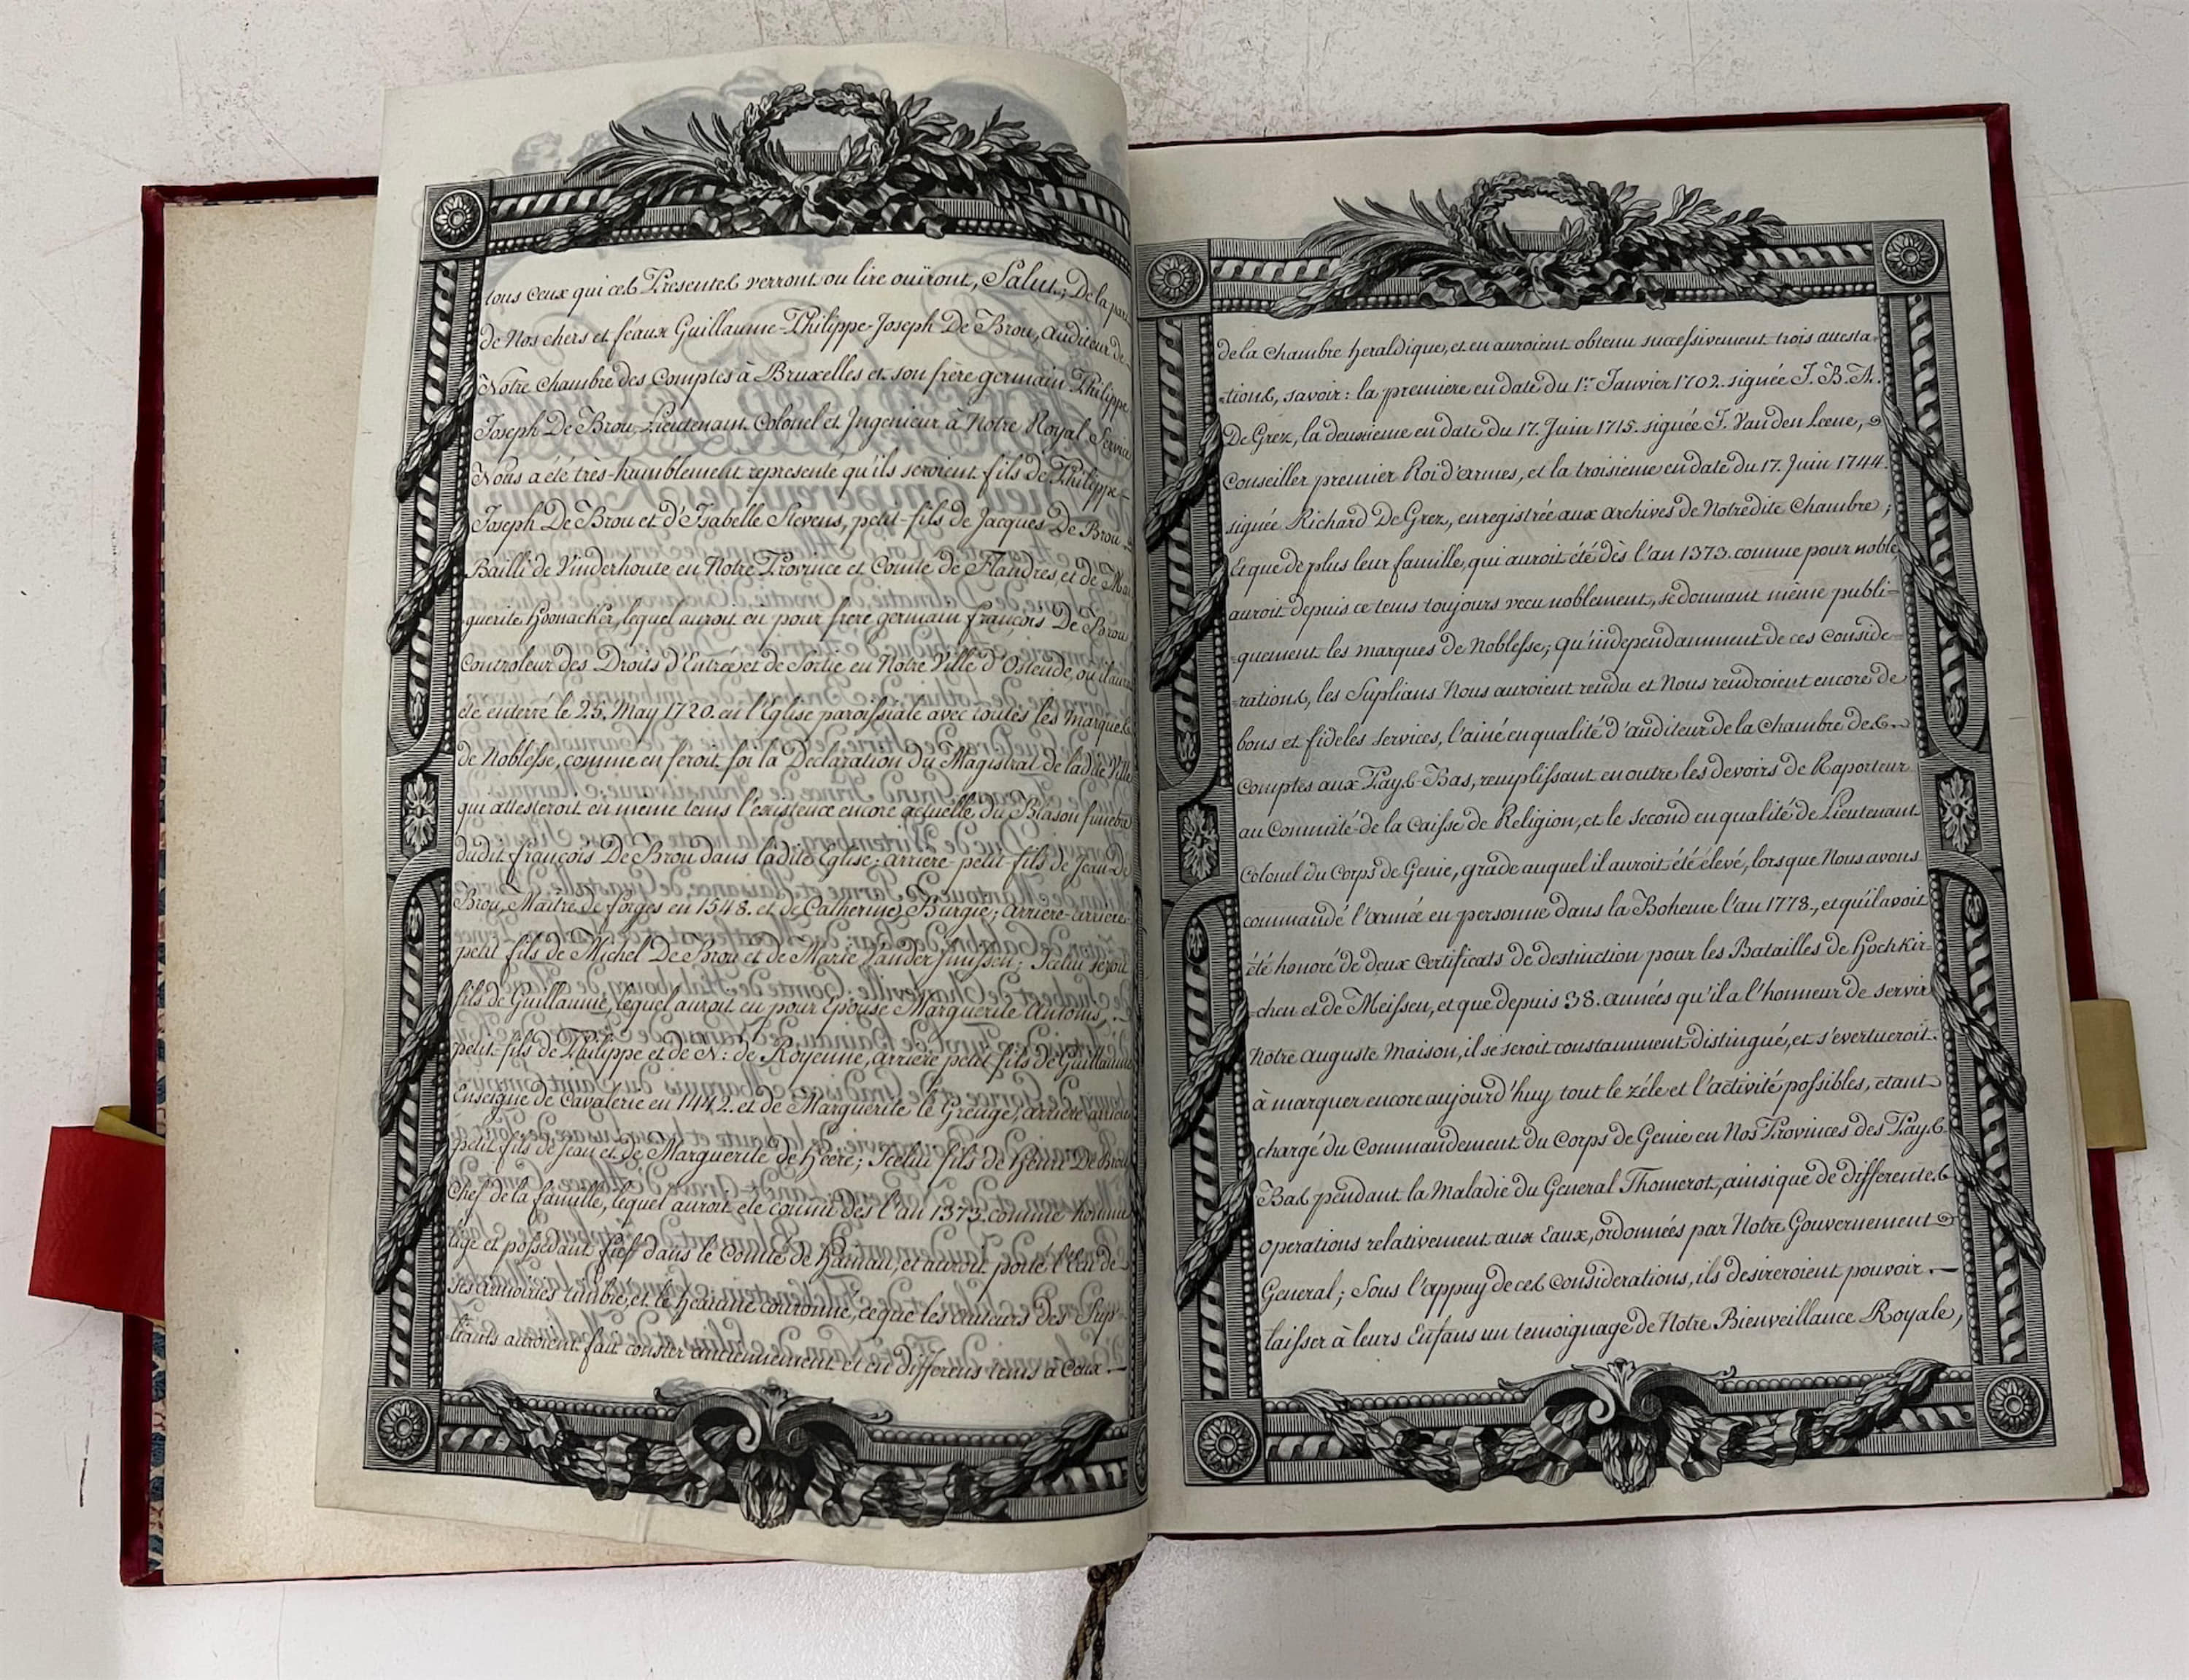 tous ceux qui ces Presentes verront ou lire ouïront, Salut; De la part
de Nos chers et féaux Guillaume-Philippe-Joseph De Brou, Auditeur de
Notre Chambre des Comptes à Bruxelles et son frère germain Philippe
Joseph De Brou, Lieutenant Colonel et Ingenieur à Notre Royal Service
Nous a été très-humblement representé qu'ils seroient fils de Philippe-
Joseph De Brou et d'Isabelle Stevens, petit-fils de Jacques De Brou
Bailli de Vinderhoute en Notre Province et Comté de Flandres, et de Mar
guerite Hoonacker, lequel auroit eu pour frere germain François De Brou
Controleur des Droits d'Entrée et de Sortie en Notre Ville d'Ostende, où il auroit
été enterré le 25. May 1720. en l'Eglise paroissiale avec toutes les marques
de Noblesse, comme en feroit foi la Declaration du Magistrat de ladite Ville
qui attesteroit en meme tems l'existence encore actuelle du Blason funebre
dudit François De Brou dans ladite Eglise; arriere-petit-fils de Jean De
Brou, Maitre de forges en 1548. et de Catherine Burgie; arriere-arriere
petit fils de Michel De Brou et de Marie Vander ; Icelui seroit
fils de Guillaume, lequel auroit eu pour Epouse Marguerite Antonis,
petit-fils de Philippe et de N: de Royenne, arriere petit fils de Guillaume
Enseigne de Cavalerie en 1442. et de Marguerite le Greuge, arriere arriere
petit fils de Jean et de Marguerite de Heere; Icelui fils de Henri De Brou
Chef de la famille, lequel auroit été connu dès l'an 1373. comme homme
lige et possedant fief dans le Comté de Hainau, et auroit porté l'Ecu de
ses armoiries timbré, et le heaume couronné, ce que les auteurs des Sup-
lians auroient fait conster anciennement et en differens tems à Ceux
de la Chambre heraldique, et en auroient obtenu successivement trois attesta-
-tions, savoir: la premiere en date du 1.er Janvier 1702. signée J. B. A.
De Grez, la deuxieme en date du 17. Juin 1715. signée J. Van den Leene,
Conseiller premier Roi d'armes, et la troisieme en date du 17. Juin 1744.
signée Richard De Grez, enregistrée aux archives de Notredite Chambre;
Et que de plus leur famille, qui auroit été dès l'an 1373. connue pour noble,
auroit depuis ce tems toujours vecu noblement, se donnant même publi-
-quement les marques de Noblesse; qu'independamment de ces conside-
-rations, les Suplians Nous auroient rendu et Nous rendroient encore de
bons et fideles services, l'ainé en qualité d'auditeur de la Chambre des
Comptes aux Pays-Bas, remplissant en outre les devoirs de Raporteur
au Committé de la Caisse de Religion, et le second en qualité de Lieutenant
Colonel du Corps de Genie, grade auquel il auroit été élevé, lorsque Nous avons
commandé l'armée en personne dans la Boheme l'an 1778., et qu'il avoit
été honoré de deux Certificats de destinction pour les Batailles de Hochkir-
-chen et de Meissen, et que depuis 38. années qu'il a l'honneur de servir
Notre Auguste Maison, il se seroit constamment distingué, et s'evertueroit
à marquer encore aujourd'huy tout le zéle et l'activité possibles, etant
chargé du Commandement du Corps de Genie en Nos Provinces des Pays
Bas pendant la Maladie du General Thomerot, ainsi que de differentes
operations relativement aux Eaux, ordonnées par Notre Gouvernement
General; Sous l'appuy de ces Considerations, ils desireroient pouvoir
laisser à leurs Enfans un temoignage de Notre Bienveillance Royale,